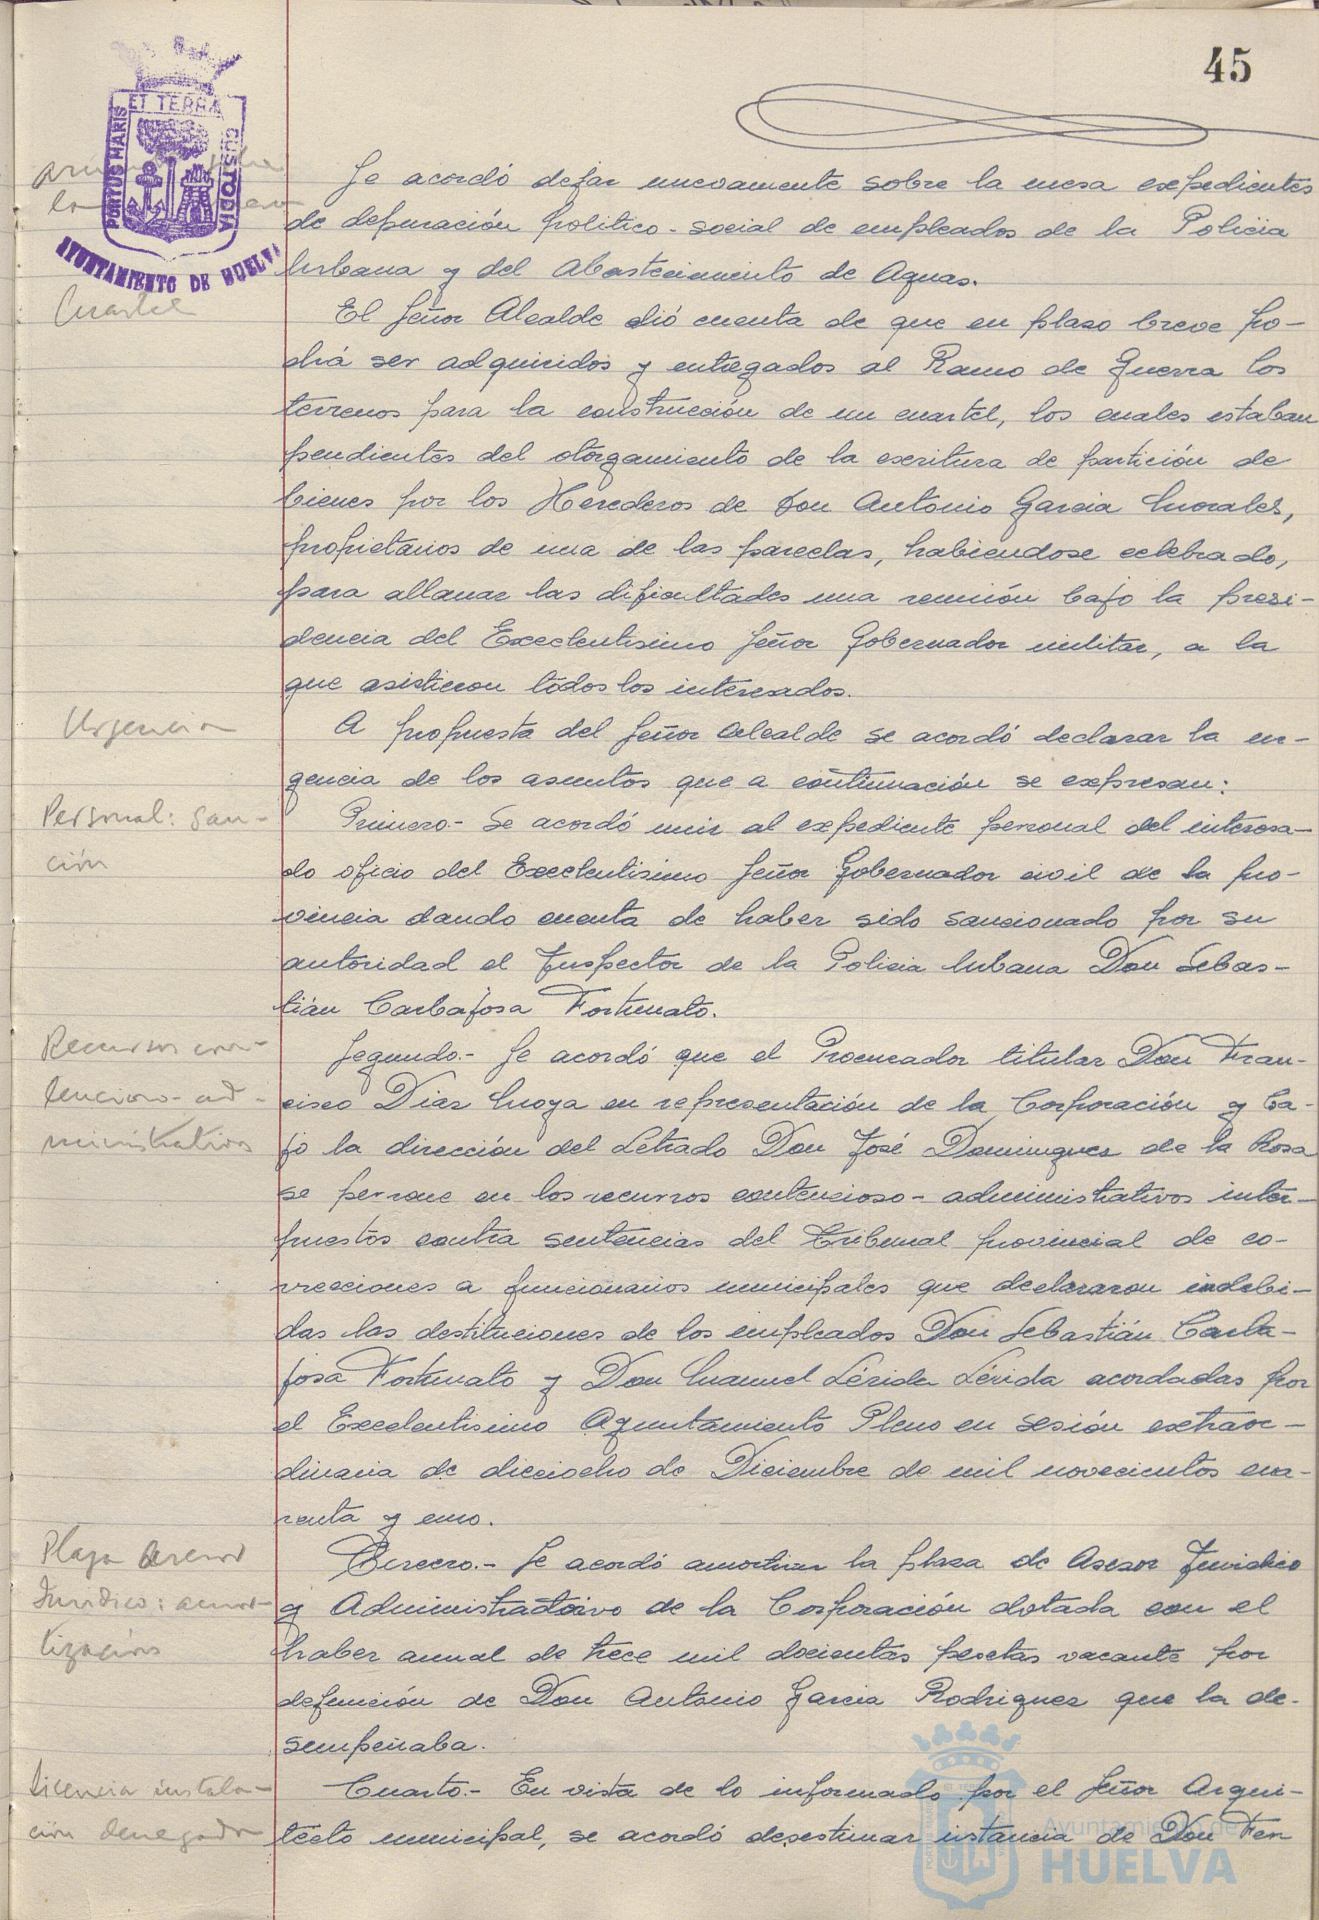 45
ET TERRA
PORTUS MARIS
CUSTODIA
AYUNTAMIENTO DE HUELVA
Se acordó dejar nuevamente sobre la mesa expedientes
de depuración politico-social de empleados de la Policia
Urbana y del Abastecimiento de Aguas.
Cuartel
El Señor Alcalde dió cuenta de que en plazo breve po-
drá ser adquiridos y entregados al Ramo de Guerra los
terrenos para la construcción de un cuartel, los cuales estaban
pendientes del otorgamiento de la escritura de partición de
bienes por los Herederos de Don Antonio Garcia Morales,
propietarios de una de las parcelas, habiendose celebrado,
para allanar las dificultades una reunión bajo la presi-
dencia del Excelentisimo Señor Gobernador militar, a la
que asistieron todos los interesados.
Urgencia
A propuesta del Señor Alcalde se acordó declarar la ur-
gencia de los asuntos que a continuación se expresan:
Personal: San-
ción
Primero.- Se acordó unir al expediente personal del interesa-
do oficio del Excelentisimo Señor Gobernador civil de la pro-
vincia dando cuenta de haber sido sancionado por su
autoridad el Inspector de la Policia Urbana Don Sebas-
tián Carbajosa Fortunato.
Recursos con-
tencioso-ad-
ministrativos
Segundo.- Se acordó que el Procurador titular Don Fran-
cisco Diaz Moya en representación de la Corporación y ba-
jo la dirección del Letrado Don José Dominguez de la Rosa
se persone en los recursos contencioso-administrativos inter-
puestos contra sentencias del Tribunal provincial de co-
rrecciones a funcionarios municipales que declararon indebi-
das las destituciones de los empleados Don Sebastián Carba-
josa Fortunato y Don Manuel Lérida Lérida acordadas por
el Excelentisimo Ayuntamiento Pleno en sesión extraor-
dinaria de dieciocho de Diciembre de mil novecientos cua-
renta y uno.
Plaza Asesor
Juridico: amor-
tización
Tercero.- Se acordó amortizar la plaza de Asesor Juridico
y Administratoivo de la Corporación dotada con el
haber anual de trece mil docientas pesetas vacante por
defunción de Don Antonio Garcia Rodriguez que la de-
sempeñaba.
Licencia instala-
ción denegada
Cuarto.- En vista de lo informado por el Señor Arqui-
tecto municipal, se acordó desestimar instancia de Don Fer
Ayuntamiento de
HUELVA